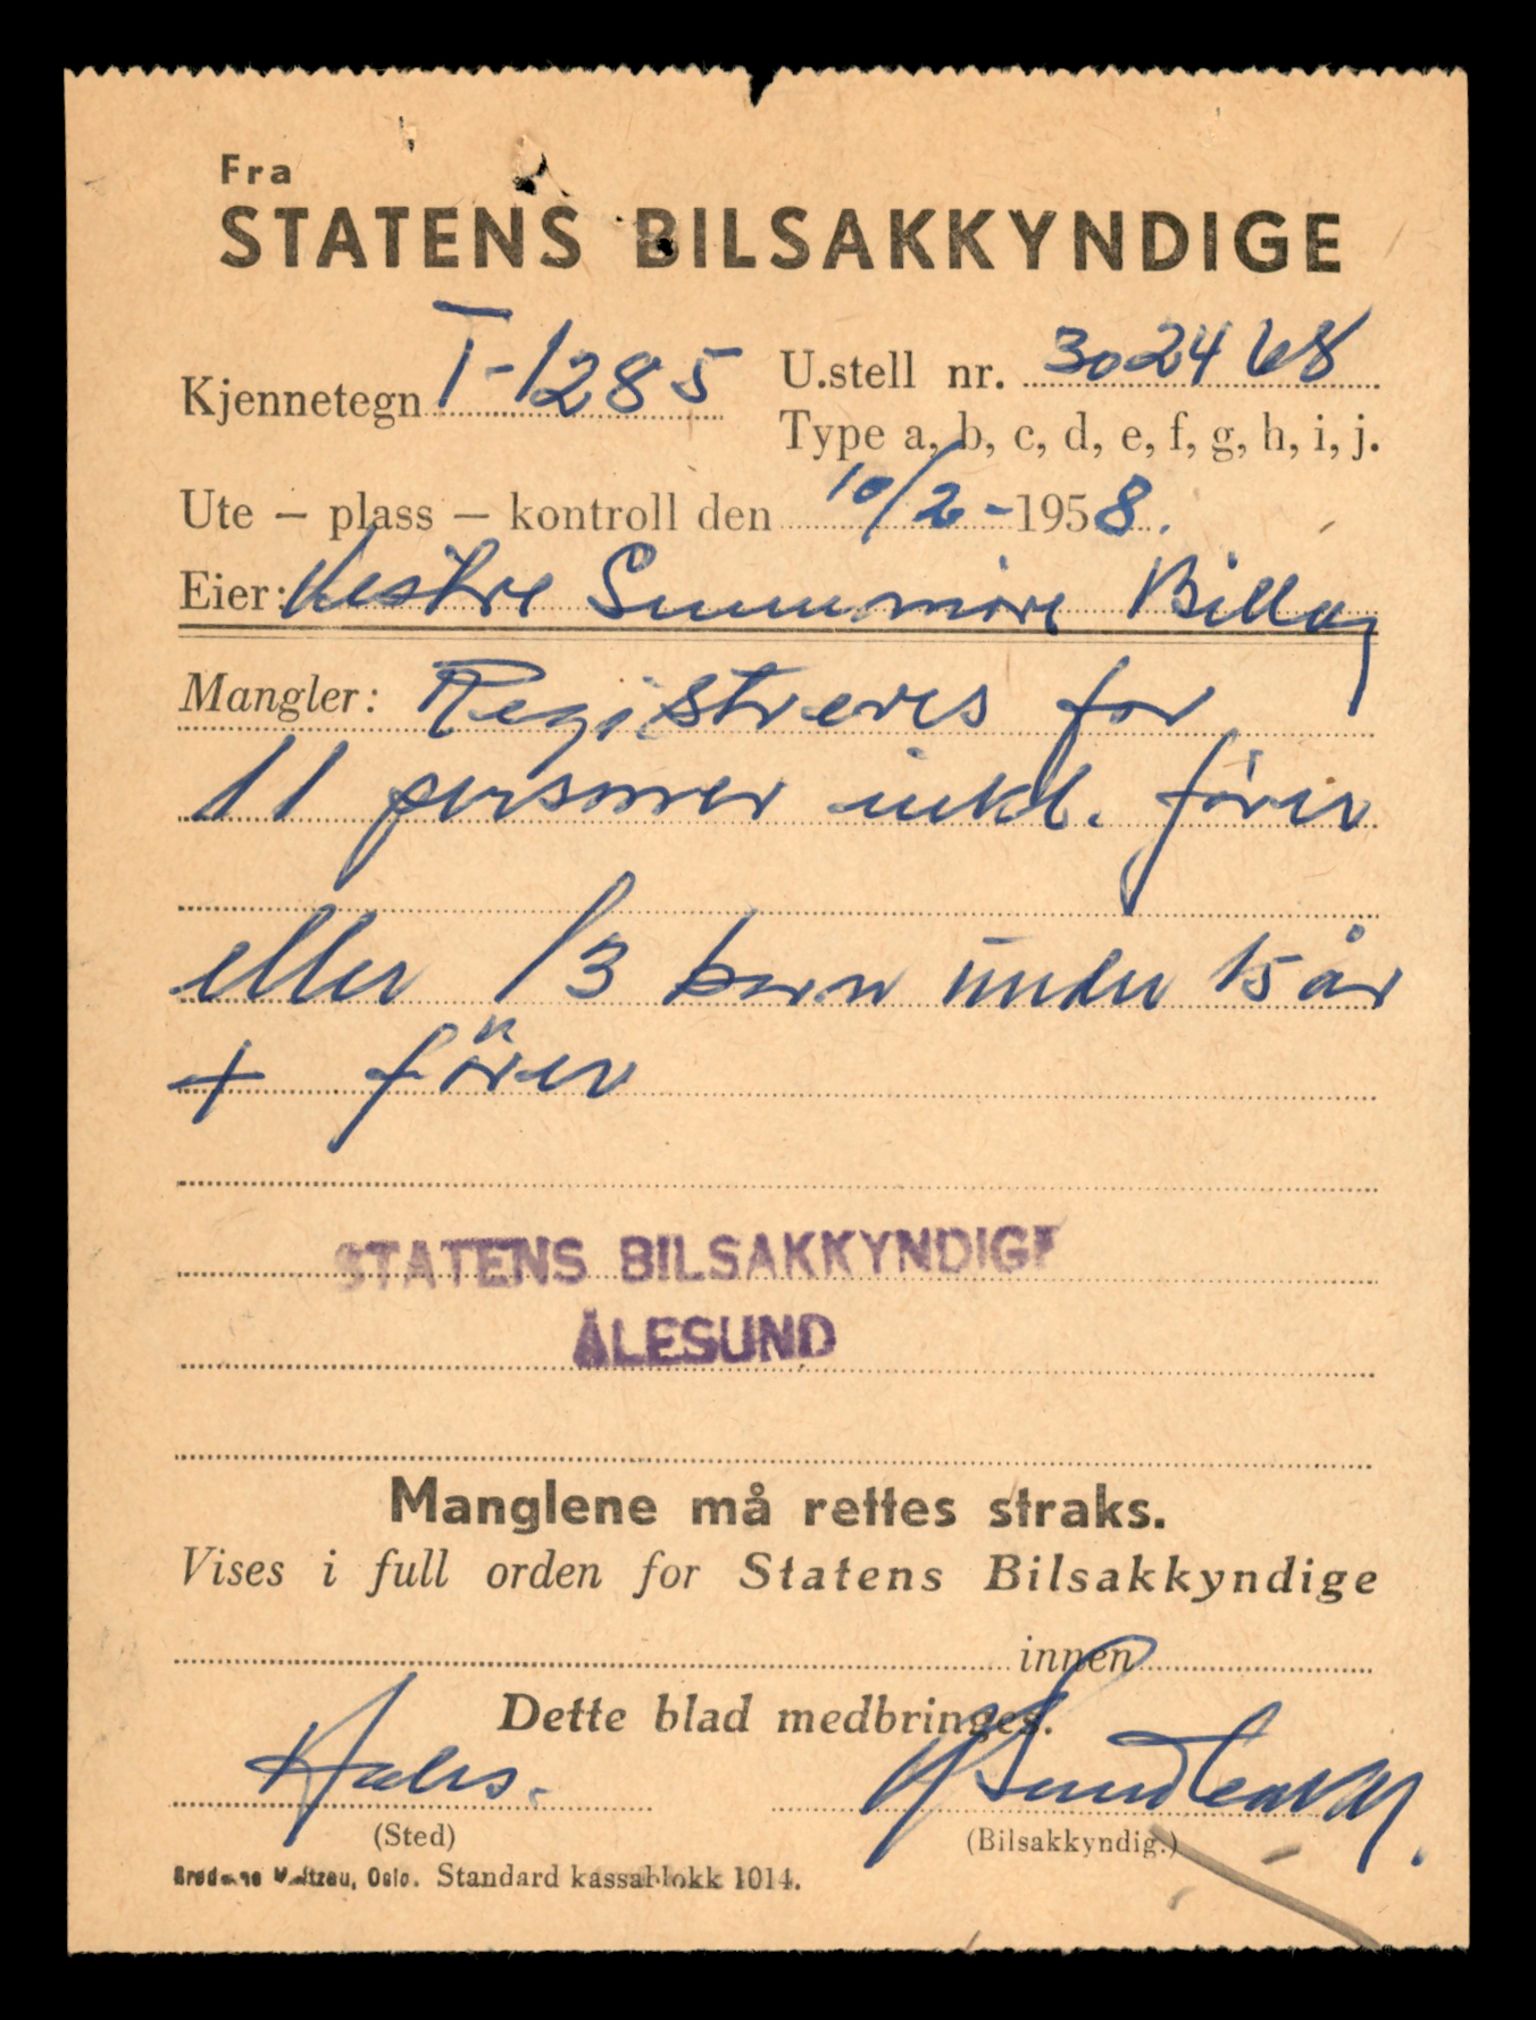 Fra
STATENS BILSAKKYNDIGE
Kjennetegn T-1285 U.stell nr. 302468
Type a, b, c, d, e, f, g, h, i, j.
Ute – plass – kontroll den 10/2-1958.
Eier: Vestre Sunnmøre Billag
Mangler: Registreres for
11 personer inkl. fører
eller 13 barn under 15 år
+ fører
STATENS BILSAKKYNDIGE
ÅLESUND
Manglene må rettes straks.
Vises i full orden for Statens Bilsakkyndige
innen
Dette blad medbringes.
(Sted) (Bilsakkyndig.)
Oslo. Standard kassablokk 1014.